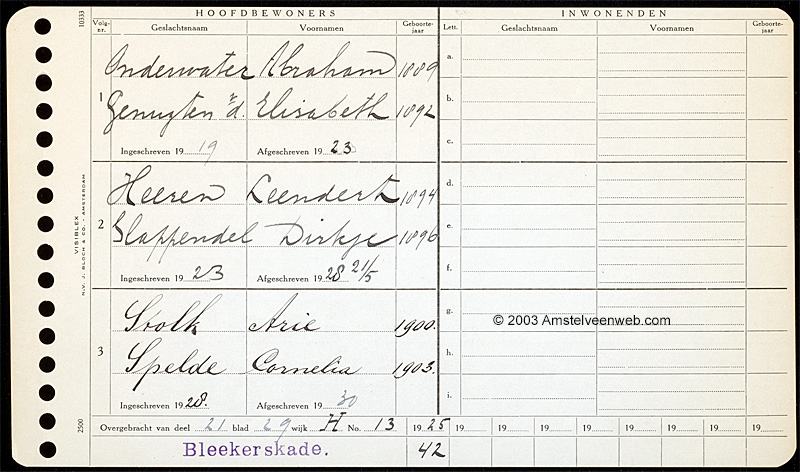 HOOFDBEWONERS INWONENDEN
Volg-nr. Geslachtsnaam Voornamen Geboorte-jaar Lett. Geslachtsnaam Voornamen Geboorte-jaar
1
Onderwater Abraham 1889
Genugten v. d. Elisabeth 1892
Ingeschreven 19 19 Afgeschreven 19 23
2
Heeren Leendert 1894
Slappendel Dirkje 1896
Ingeschreven 19 23 Afgeschreven 19 28 21/5
3
Stolk Arie 1900.
Spelde Cornelia 1903.
Ingeschreven 19 28. Afgeschreven 19 30
a.
b.
c.
d.
e.
f.
g.
h.
i.
Overgebracht van deel 21 blad 29 wijk H No. 13 19 25 19 19 19 19 19 19 19 19
Bleekerskade. 42
10333
VISIBLEX
N.V. J. BLOCH & CO. - AMSTERDAM
2500
© 2003 Amstelveenweb.com